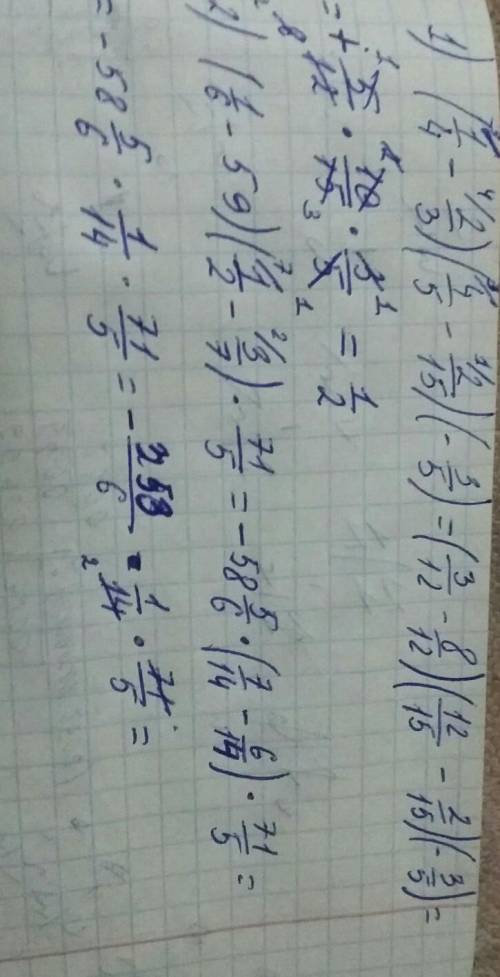 1) (1/4 - 2/3)(4/5 - 2/15)(-3/5) = (3/12 - 8/12)(12/15 - 2/15)(-3/5) =
= + 5/12 · 10/15 · 3/5 = 1/2
2) (1/6 - 59)(1/2 - 3/7) · 71/5 = -58 5/6 · (7/14 - 6/14) · 71/5 =
= -58 5/6 · 1/14 · 71/5 = - /6 · 1/14 · 71/5 =